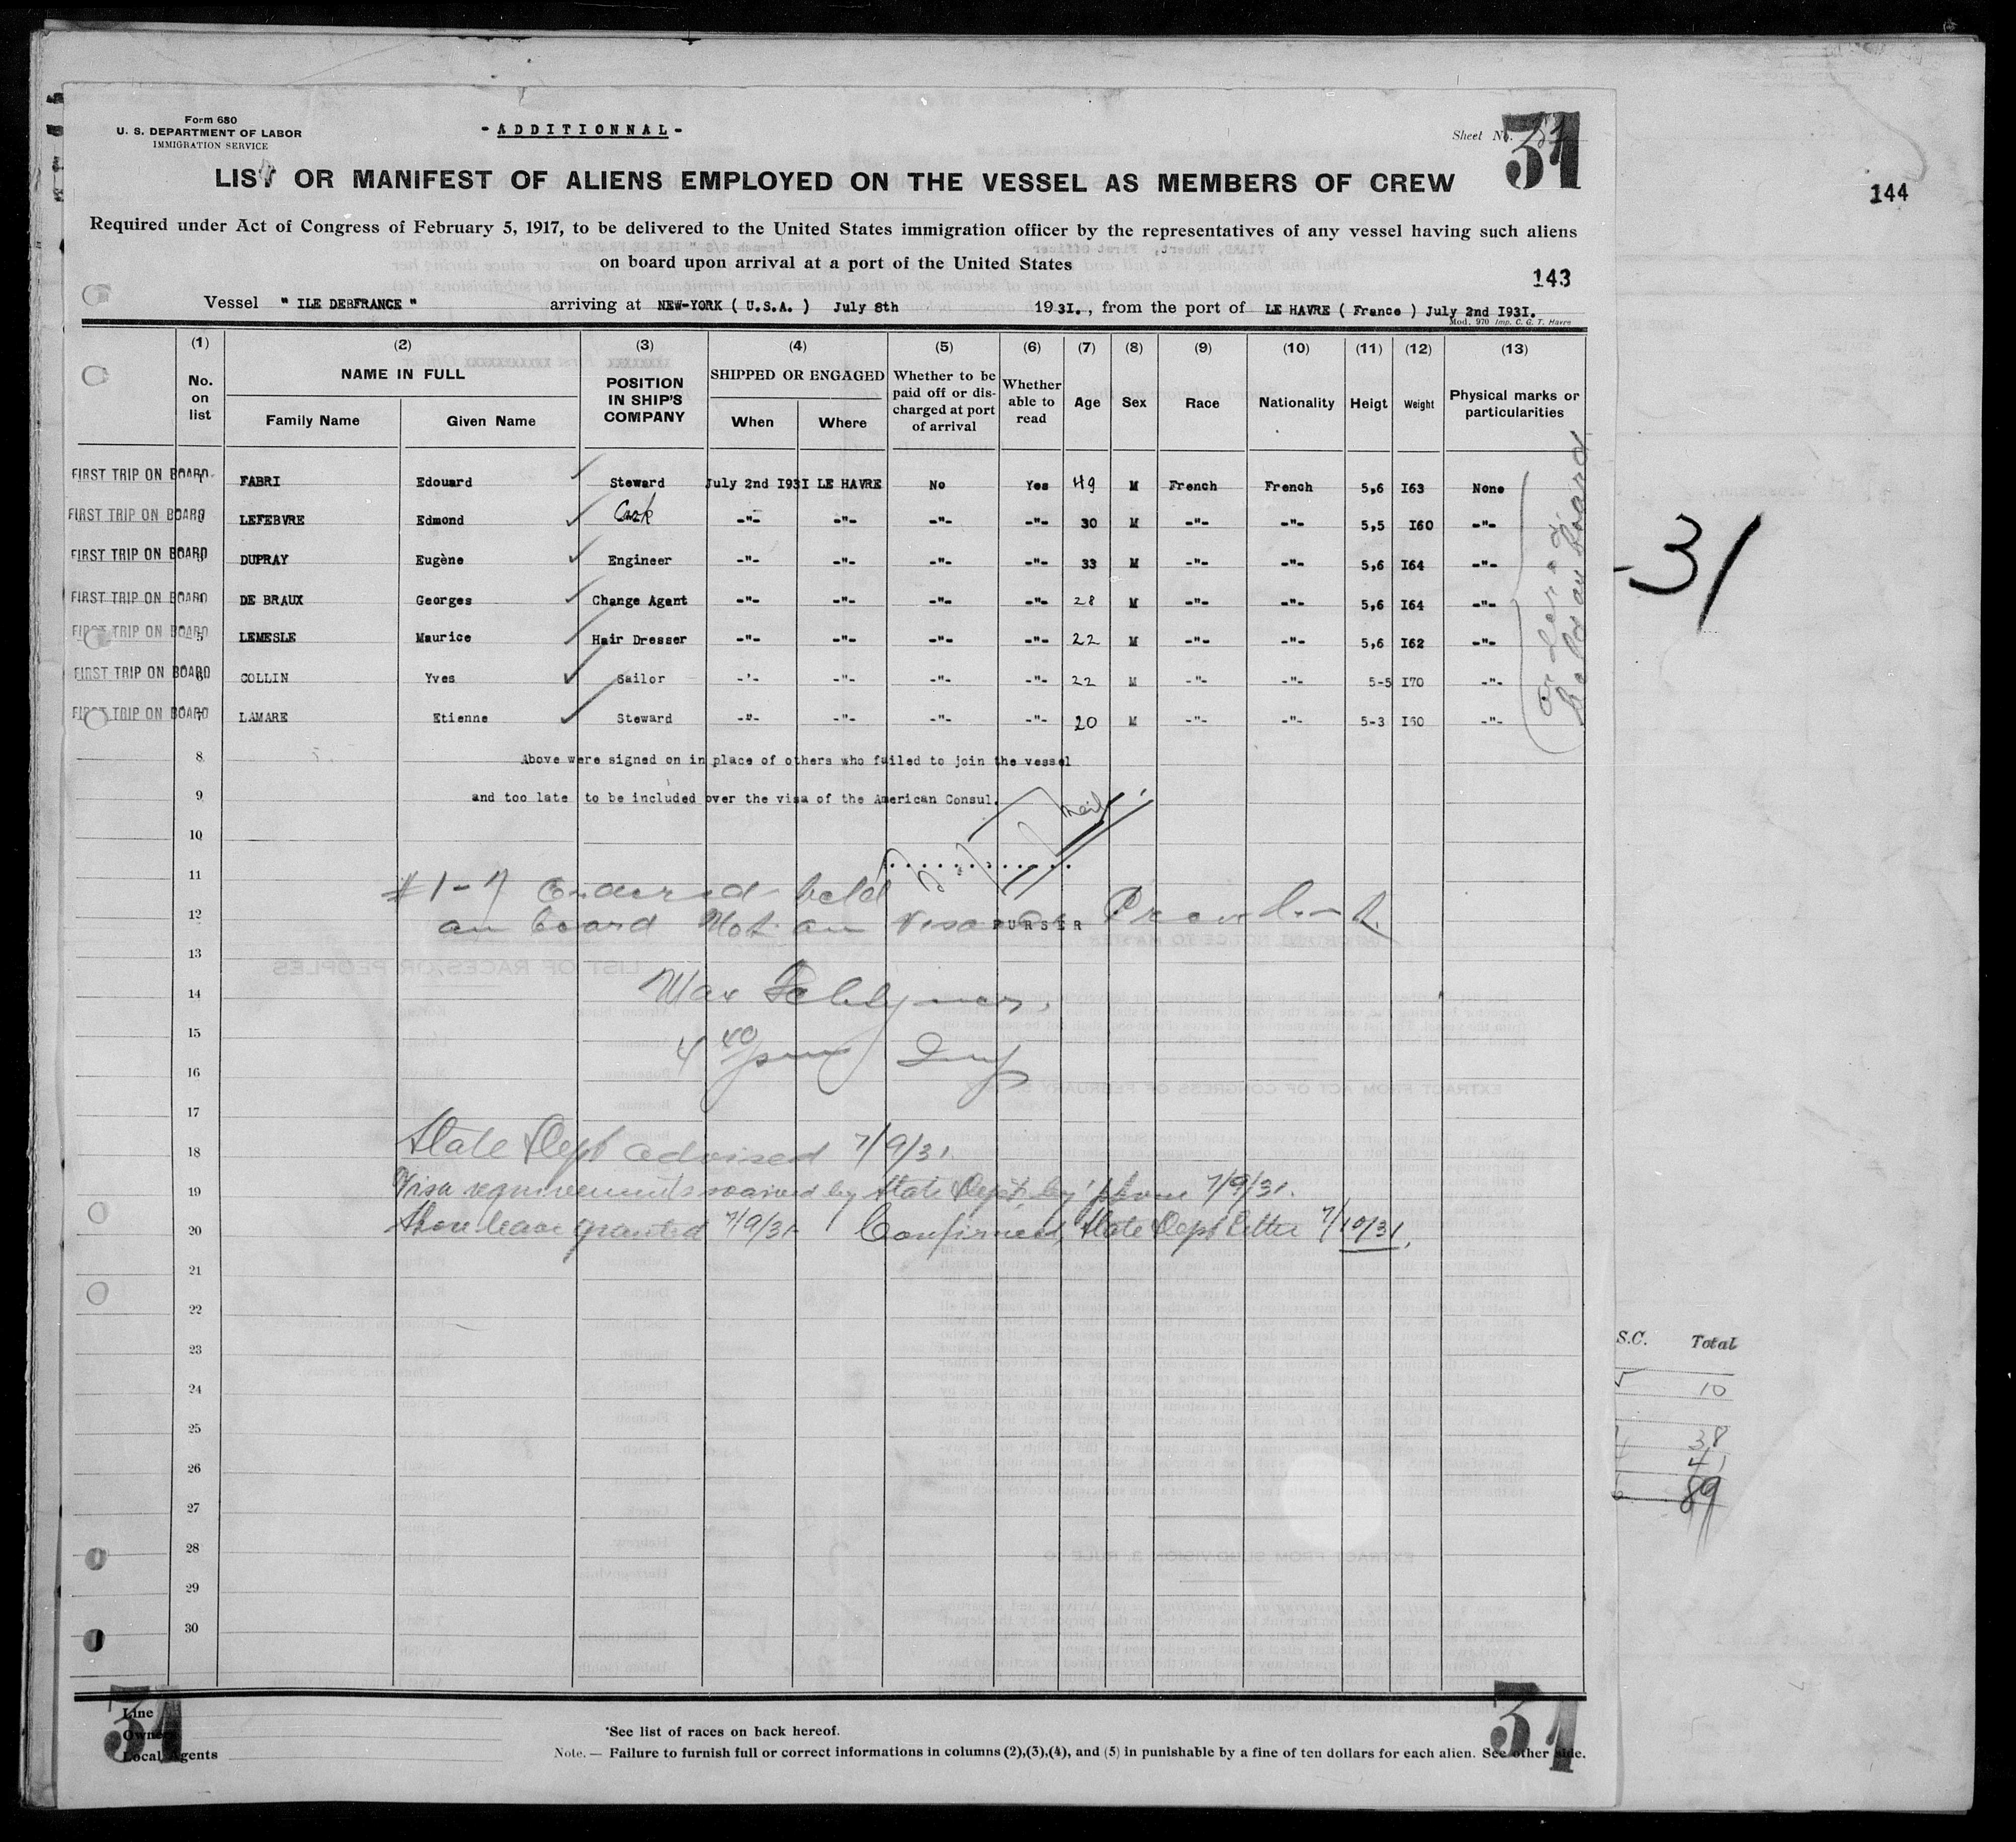 Form 680
U. S. DEPARTMENT OF LABOR
IMMIGRATION SERVICE
- ADDITIONNAL -
Sheet No. 31
LIST OR MANIFEST OF ALIENS EMPLOYED ON THE VESSEL AS MEMBERS OF CREW
144
Required under Act of Congress of February 5, 1917, to be delivered to the United States immigration officer by the representatives of any vessel having such aliens
on board upon arrival at a port of the United States
143
Vessel " ILE DEBFRANCE " arriving at NEW-YORK ( U.S.A. ) July 8th 1931., from the port of LE HAVRE ( France ) July 2nd I931.
Mod. 970 Imp. C. G. T. Havre
(1) (2) (3) (4) (5) (6) (7) (8) (9) (10) (11) (12) (13)
No. on list NAME IN FULL Family Name Given Name POSITION IN SHIP'S COMPANY SHIPPED OR ENGAGED When Where Whether to be paid off or discharged at port of arrival Whether able to read Age Sex Race Nationality Heigt Weight Physical marks or particularities
FIRST TRIP ON BOARD 1 FABRI Edouard Steward July 2nd I93I LE HAVRE No Yes 49 M French French 5,6 I63 None
FIRST TRIP ON BOARD LEFEBVRE Edmond Cook -"- -"- -"- -"- 30 M -"- -"- 5,5 I60 -"-
FIRST TRIP ON BOARD DUPRAY Eugène Engineer -"- -"- -"- -"- 33 M -"- -"- 5,6 I64 -"-
FIRST TRIP ON BOARD DE BRAUX Georges Change Agent -"- -"- -"- -"- 28 M -"- -"- 5,6 I64 -"-
FIRST TRIP ON BOARD 5 LEMESLE Maurice Hair Dresser -"- -"- -"- -"- 22 M -"- -"- 5,6 I62 -"-
FIRST TRIP ON BOARD 6 COLLIN Yves Sailor -'- -"- -"- -"- 22 M -"- -"- 5-5 I70 -"-
FIRST TRIP ON BOARD 7 LAMARE Etienne Steward -"- -"- -"- -"- 20 M -"- -"- 5-3 I50 -"-
ordered held on board
-31
8 Above were signed on in place of others who failed to join the vessel
9 and too late to be included over the visa of the American Consul.
10
11 #1-7 Ordered held
12 on board Not on visaed
PURSER
13
14 Max
15 4 40 pm
16
17
18 State Dept advised 7/9/31.
19 Visa requirements waived by State Dept. by phone 7/9/31.
20 Shore leave granted 7/9/31 Confirmed, State Dept letter 7/10/31.
21
22
23
24
25
26
27
28
29
30
S.C. Total
10
38
41
89
31
Line
Owners
Local Agents
*See list of races on back hereof.
Note. — Failure to furnish full or correct informations in columns (2),(3),(4), and (5) in punishable by a fine of ten dollars for each alien. See other side.
31